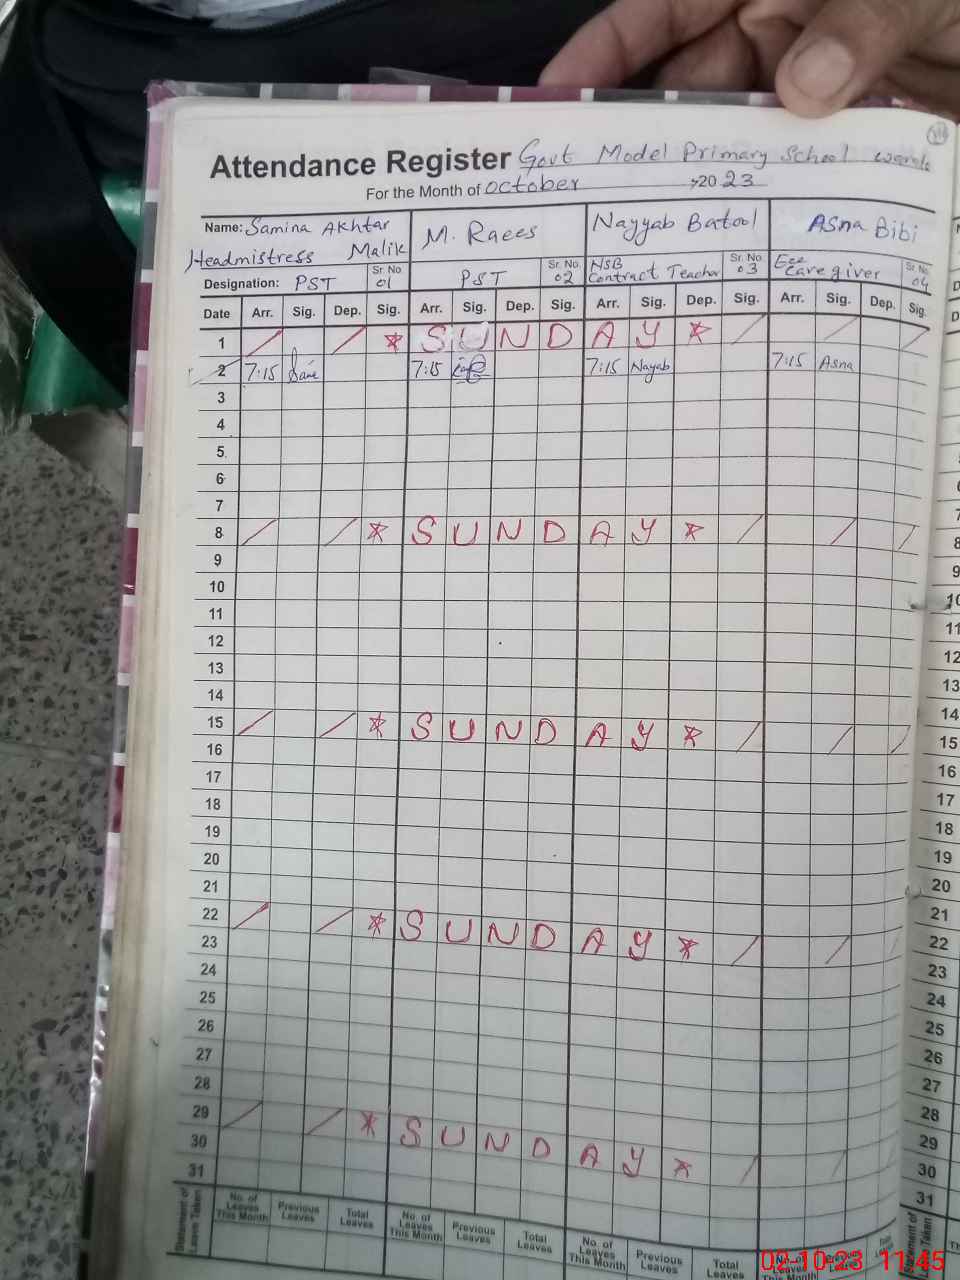 Attendance Register Govt Model Primary School
For the Month of October 2023
Name: Samina Akhtar Malik
Headmistress
Designation: PST Sr. No. 01
M. Raees
PST Sr. No. 02
Nayyab Batool
NSB Contract Teacher Sr. No. 03
Asna Bibi
Ece Care giver Sr. No. 04
Date Arr. Sig. Dep. Sig. Arr. Sig. Dep. Sig. Arr. Sig. Dep. Sig. Arr. Sig. Dep. Sig.
1 / / * S U N D A Y * / / /
2 7:15 7:15 7:15 Nayab 7:15 Asna
3
4
5
6
7
8 / / * S U N D A Y * / / /
9
10
11
12
13
14
15 / / * S U N D A Y * / / /
16
17
18
19
20
21
22 / / * S U N D A Y * / / /
23
24
25
26
27
28
29 / / * S U N D A Y * / /
30
31
Statement of Leaves Taken
No. of Leaves This Month Previous Leaves Total Leaves No. of Leaves This Month Previous Leaves Total Leaves No. of Leaves This Month Previous Leaves Total Leaves
7
8
9
10
11
12
13
14
15
16
17
18
19
20
21
22
23
24
25
26
27
28
29
30
31
02-10-23 11:45